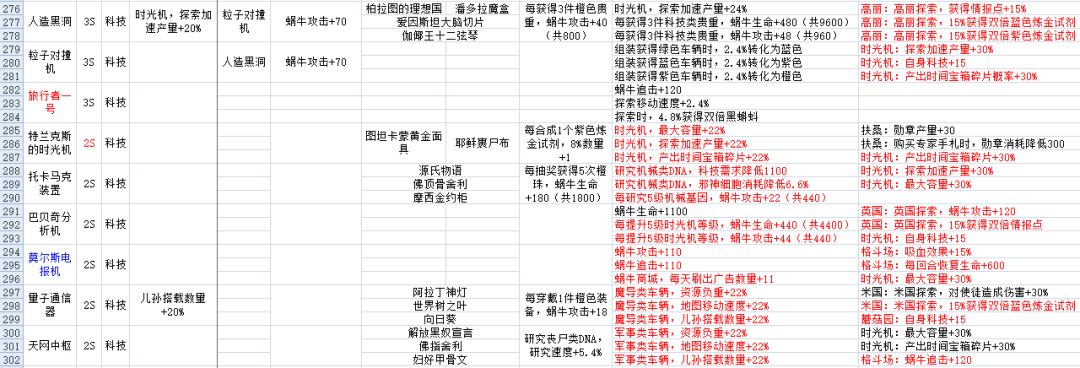 276 时光机，探索加速产量+24% 高丽：高丽探索，获得情报点+15%
277 人造黑洞 3S 科技 时光机，探索加速产量+20% 粒子对撞机 蜗牛攻击+70 柏拉图的理想国 潘多拉魔盒 爱因斯坦大脑切片 伽倻王十二弦琴 每获得3件橙色贵重，蜗牛攻击+40（共800） 每获得3件科技类贵重，蜗牛生命+480（共9600） 高丽：高丽探索，15%获得双倍蓝色炼金试剂
278 每获得3件科技类贵重，蜗牛攻击+48（共960） 高丽：高丽探索，15%获得双倍紫色炼金试剂
279 组装获得绿色车辆时，2.4%转化为蓝色 时光机：探索加速产量+30%
280 粒子对撞机 3S 科技 人造黑洞 蜗牛攻击+70 组装获得蓝色车辆时，2.4%转化为紫色 时光机：自身科技+15
281 组装获得紫色车辆时，2.4%转化为橙色 时光机：产出时间宝箱碎片概率+30%
282 蜗牛追击+120
283 旅行者一号 3S 科技 探索移动速度+2.4%
284 探索时，4.8%获得双倍黑蝌蚪
285 时光机，最大容量+22% 扶桑：勋章产量+30
286 特兰克斯的时光机 2S 科技 图坦卡蒙黄金面具 耶鲜裹尸布 每合成1个紫色炼金试剂，8%数量+1 时光机，探索加速产量+22% 扶桑：购买专家手札时，勋章消耗降低300
287 时光机，产出时间宝箱碎片+22% 时光机：产出时间宝箱碎片+30%
288 源氏物语 研究机械类DNA，科技需求降低1100 时光机：探索加速产量+30%
289 托卡马克装置 2S 科技 佛顶骨舍利 每抽奖获得5次橙珠，蜗牛生命+180（共1800） 研究机械类DNA，邪神细胞消耗降低6.6% 时光机：最大容量+30%
290 摩西金约柜 每研究5级机械基因，蜗牛攻击+22（共440）
291 蜗牛生命+1100 英国：英国探索，蜗牛攻击+120
292 巴贝奇分析机 2S 科技 每提升5级时光机等级，蜗牛生命+440（共4400） 英国：英国探索，15%获得双倍情报点
293 每提升5级时光机等级，蜗牛攻击+44（共440） 时光机：自身科技+15
294 蜗牛攻击+110 格斗场：吸血效果+15%
295 莫尔斯电报机 2S 科技 蜗牛追击+110 格斗场：每回合恢复生命+600
296 蜗牛商城，每天刷出广告数量+11
297 阿拉丁神灯 魔导类车辆，资源负重+22% 米国：米国探索，对使徒造成伤害+30%
298 量子通信器 2S 科技 儿孙搭载数量+20% 世界树之叶 每穿戴1件橙色装备，蜗牛攻击+18 魔导类车辆，地图移动速度+22% 米国：米国探索，15%获得双倍蓝色炼金试剂
299 向日葵 魔导类车辆，儿孙搭载数量+22% 蘑菇园：自身科技+15
300 解放黑奴宣言 军事类车辆，资源负重+22% 时光机：最大容量+30%
301 天网中枢 2S 科技 佛指舍利 研究丧尸类DNA，研究速度+5.4% 军事类车辆，地图移动速度+22% 时光机：产出时间宝箱碎片+30%
302 妇好甲骨文 军事类车辆，儿孙搭载数量+22% 格斗场：蜗牛追击+120